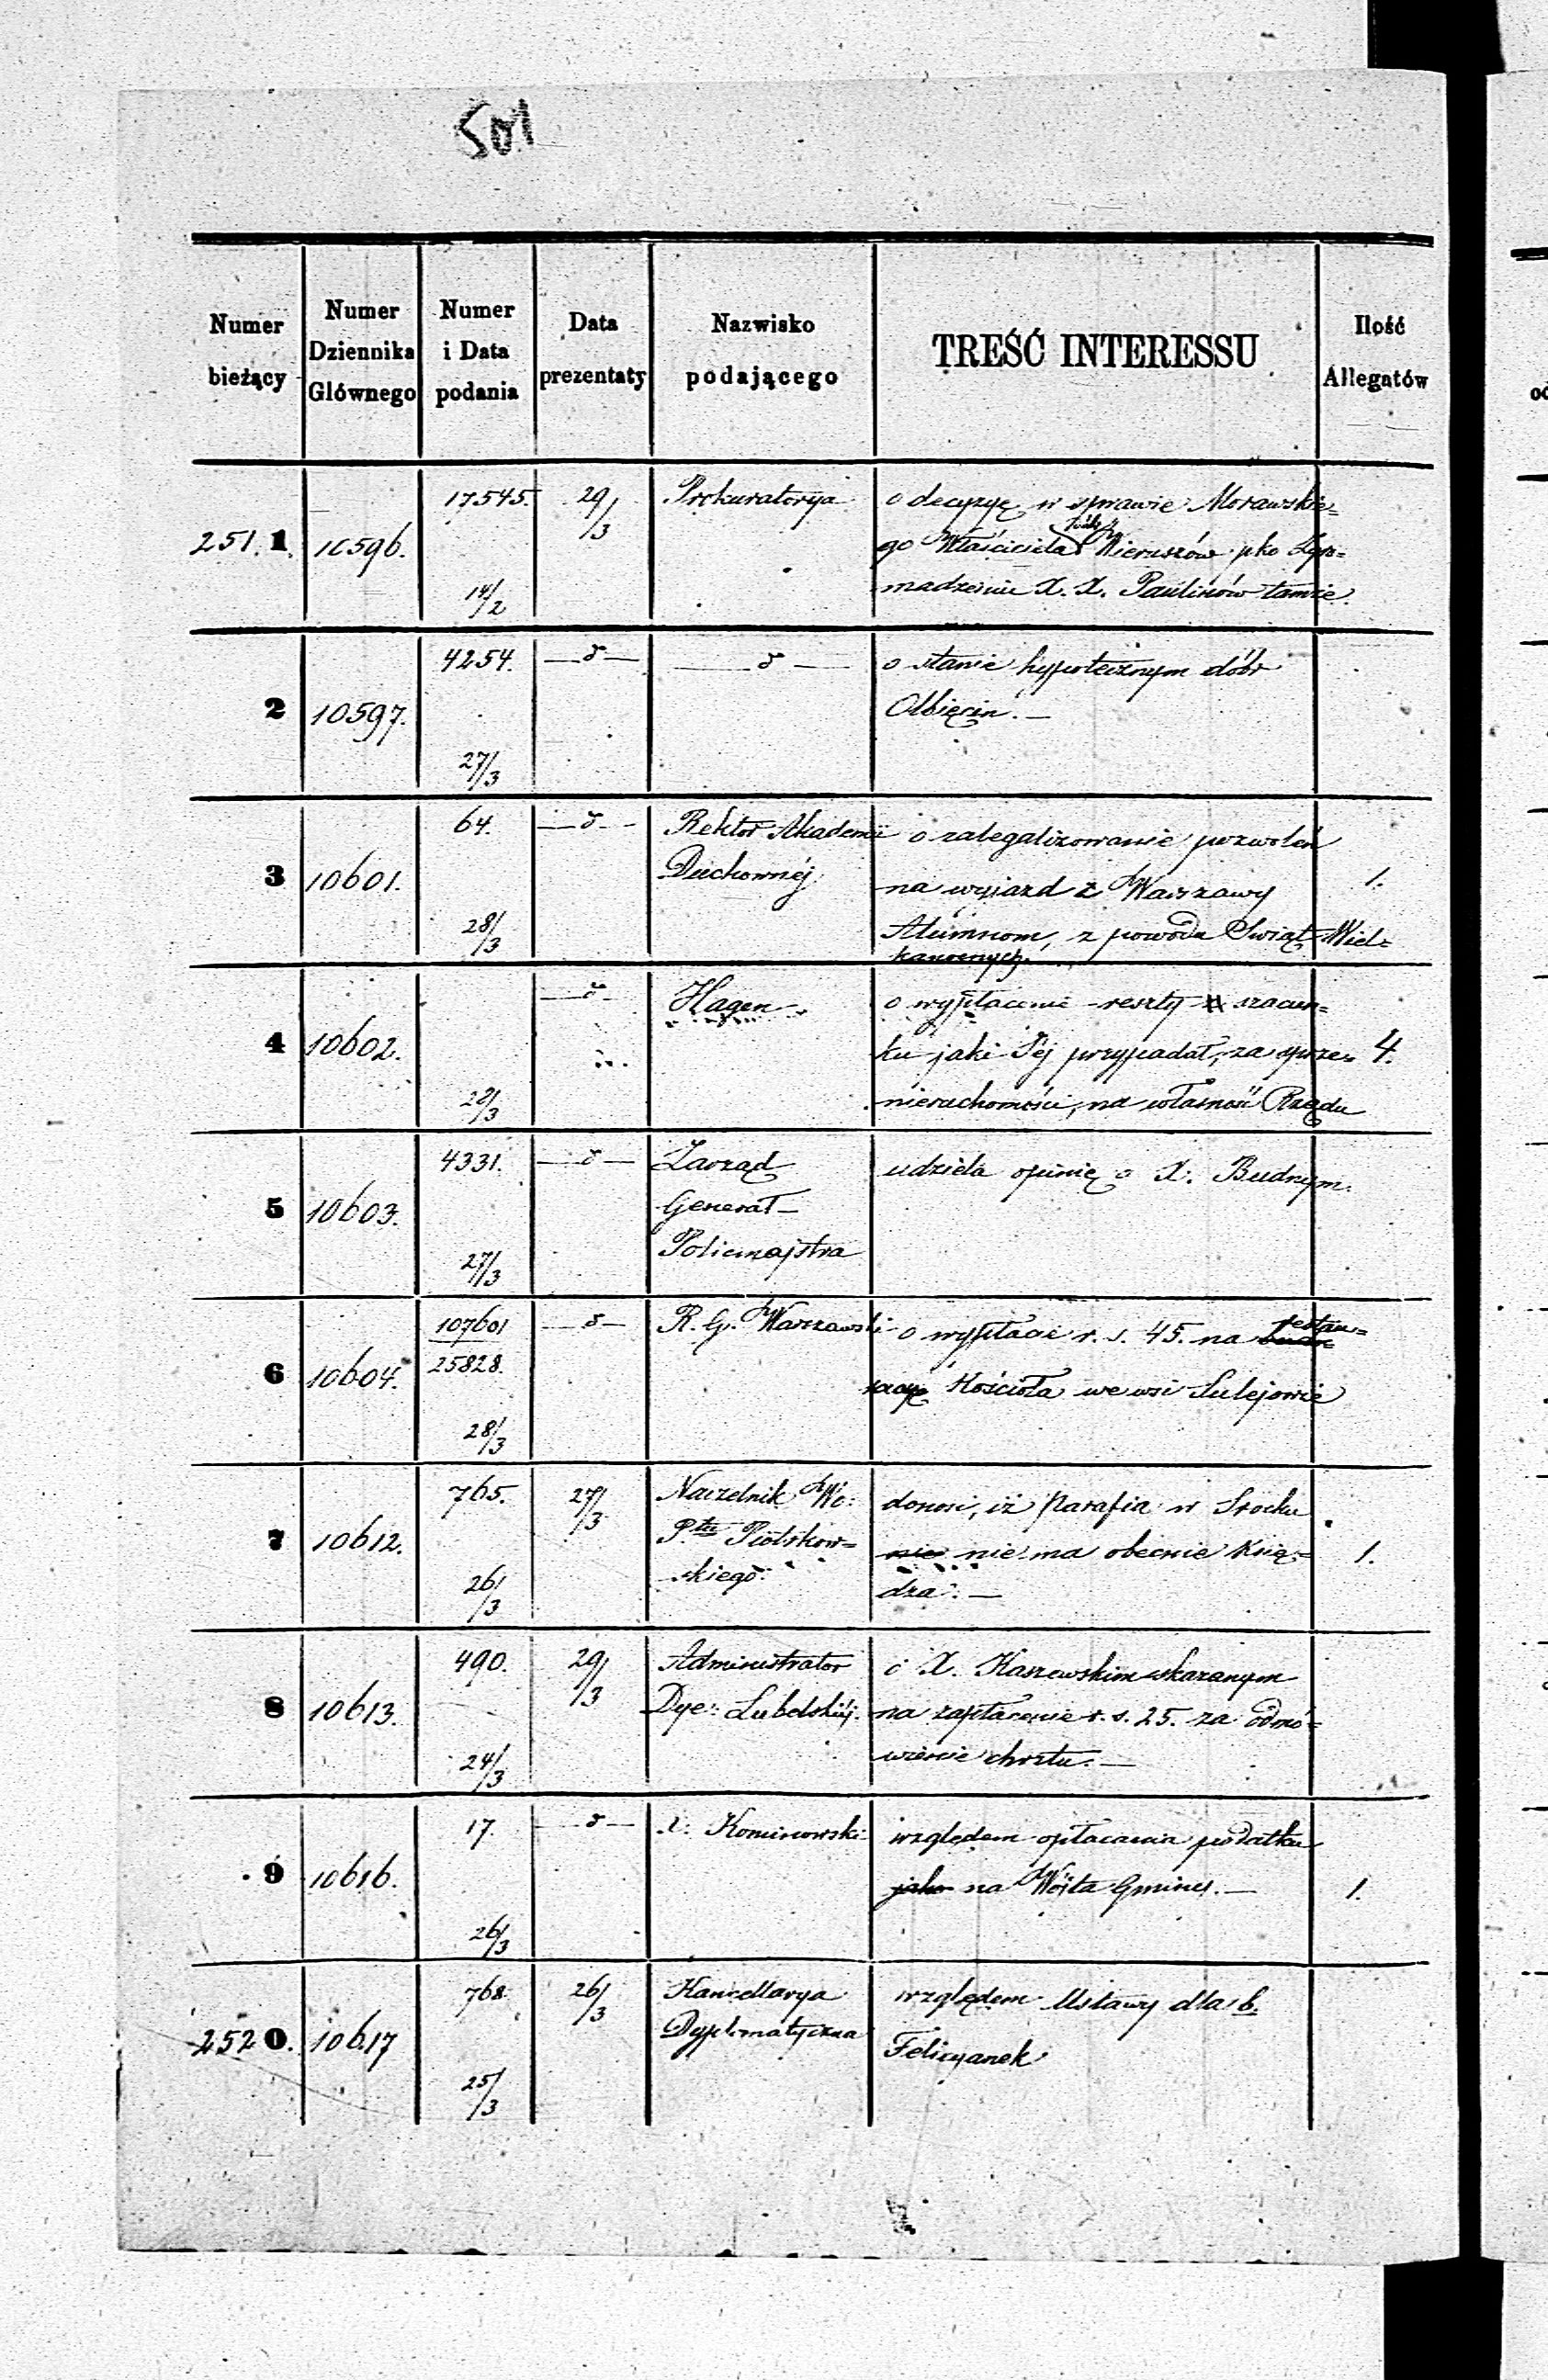 501
Numer bieżący
Numer Dziennika Głównego
Numer i Data podania
Data prezentaty
Nazwisko podającego
TREŚĆ INTERESSU
Ilość Allegatów
251.1. 10596. 17545. 14/2 29/3 Prokuratorya
o decyzyę w sprawie Morawskie=
go Właściciela dóbr Wieruszów pko Zgro=
madzeniu X. X. Paulinów tamże.
2 10597. 4254. 27/3 —d— —d—
o stanie hypotecznym dóbr
Olbięcin. —
3 10601. 64. 28/3 —d— Rektor Akademii
Duchownéj
o zalegalizowanie pozwoleń
na wyjazd z Warszawy 1.
Alumnom, z powodu Swiąt Wiel=
kanocnych.
4 10602. 28/3 —d— Hagen
o wypłacenie reszty szacun=
ku jaki Jéj przypadał, za sprze= 4.
nieruchomości, na własność Rządu
5 10603. 4331. 27/3 —d— Zarząd
Generał—
Policmajstra
udziela opinię o X. Budnym.
6 10604. 107601
25828. 28/3 —d— R. G. Warszawski
o wypłacie r. s. 45. na restau=
racyę Kościoła we wsi Sulejowie
7 10612. 765. 26/3 27/3 Naczelnik Wo:
Ptu Piotrkow=
skiego
donosi, iż Parafia w Srocku
nie nie ma obecnie Księ= 1.
dza. —
8 10613. 490. 24/3 29/3 Administrator
Dye: Lubelskiéj.
o X. Kaszewskim skazanym
na zapłacenie r. s. 25. za odmó=
wienie chrztu. —
9 10616. 17. 26/3 —d— X. Kominowski
względem opłacania podatku
jako na Wójta Gminy. — 1.
2520. 10617 768. 25/3 26/3 Kancellarya
Dyplomatyczna
względem Ustawy dla b.
Felicyanek